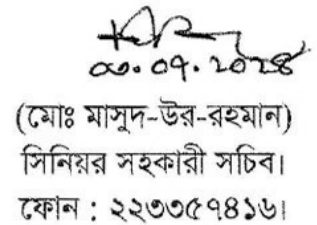 ০৩.০৭.২০২৪
(মোঃ মাসুদ-উর-রহমান)
সিনিয়র সহকারী সচিব।
ফোন : ২২৩৩৫৭৪১৬।